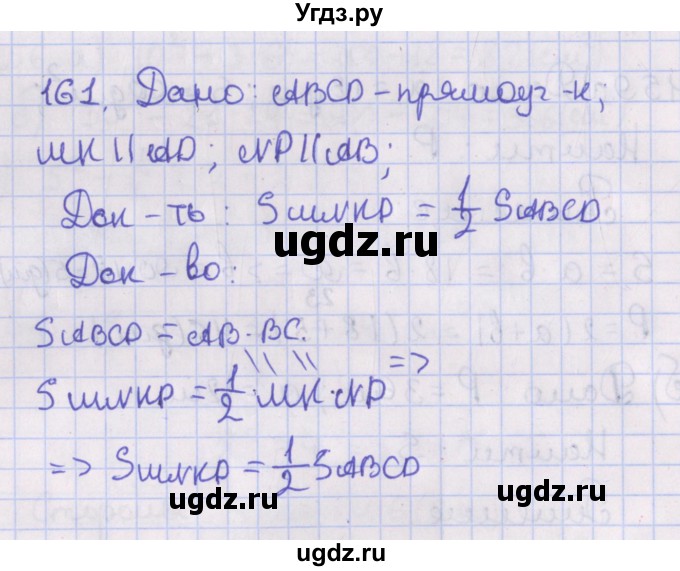 Угдз.ру
161. Дано: ABCD – прямоуг-к;
MK || AD; NP || AB;
Док-ть: SMNKP = 1/2 SABCD
ugdz.ru
Док-во:
SABCD = AB · BC.
\\ \\ =>
SMNKP = 1/2 · MK · NP
=> SMNKP = 1/2 SABCD
ugdz.ru ugdz.ru
ugdz.ru